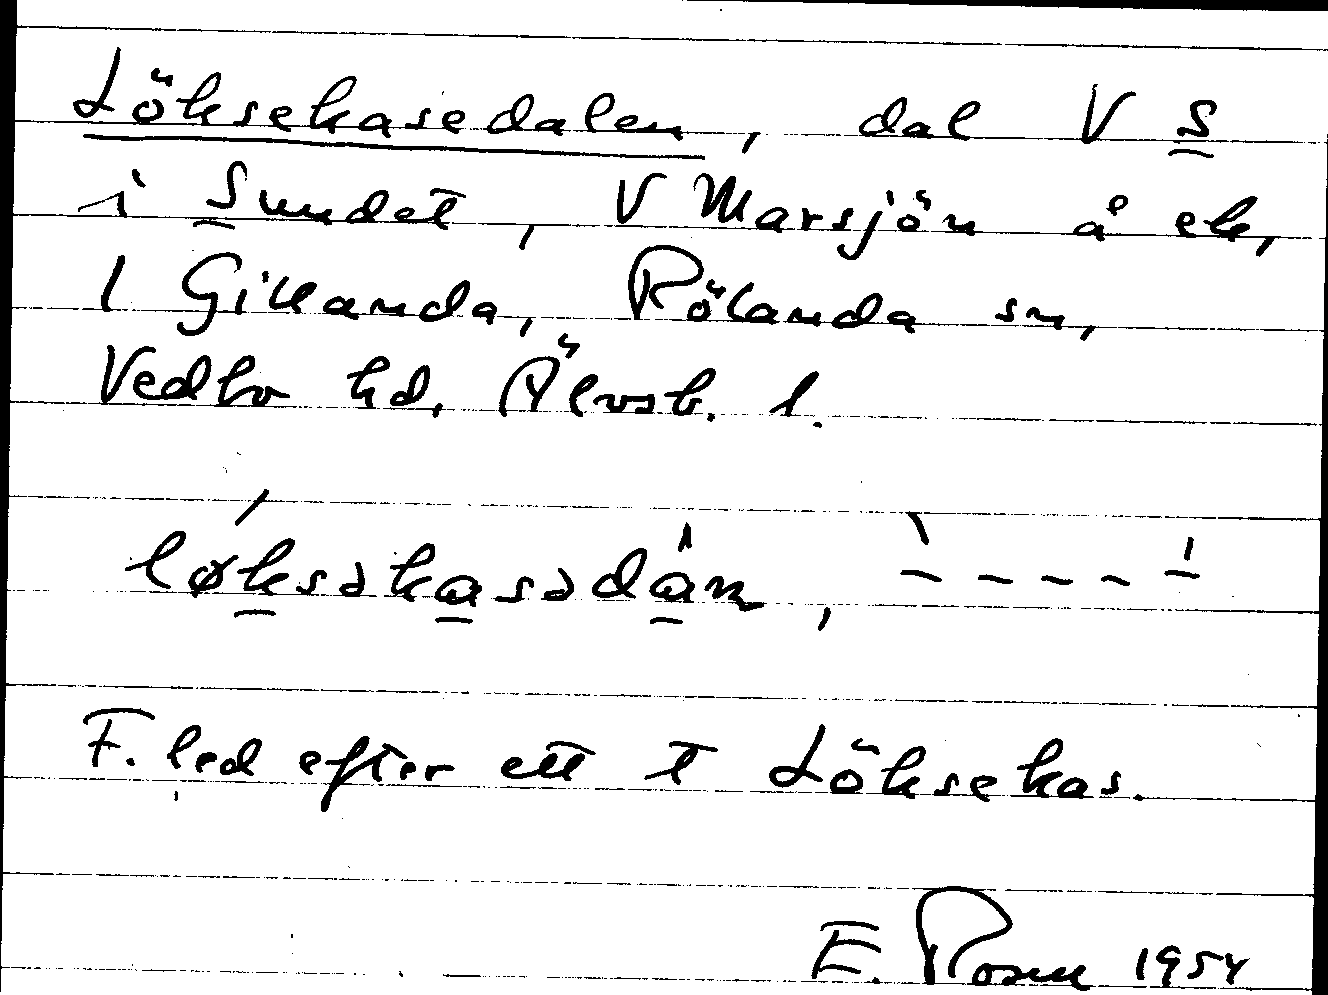 Löksekasedalen, dal V S
i Sundet, V Marsjön å ek,
1 Gillanda, Rölanda sn,
Vedbo hd, Älvsb. l.
løksəkasədân,
F. led efter ett t Löksekas.
E. Rosen 1954